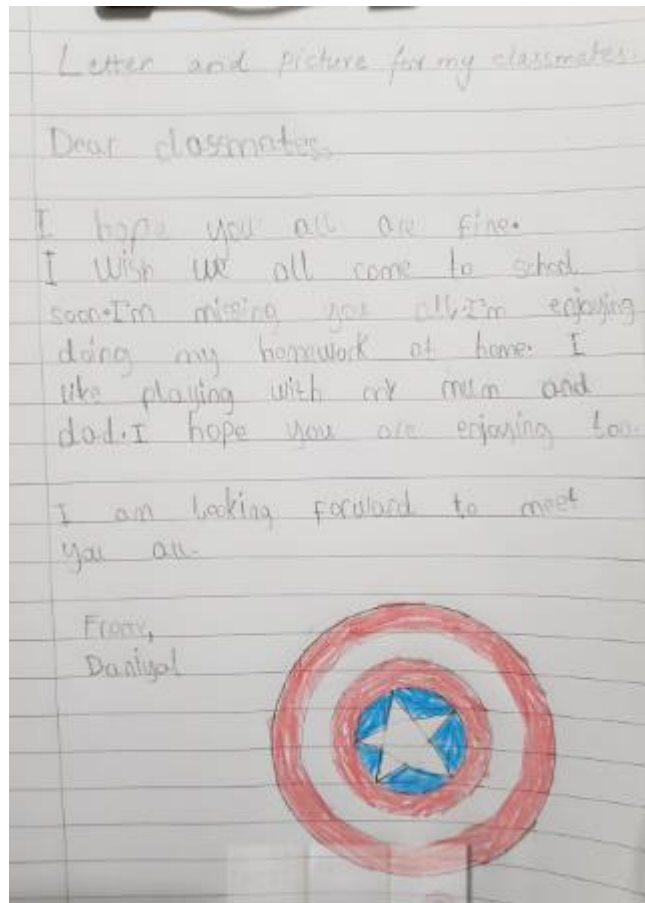 Letter and picture for my classmates.
Dear classmates,
I hope you all are fine.
I wish we all come to school
soon. I'm missing you all. I'm enjoying
doing my homework at home. I
like playing with my mum and
dad. I hope you are enjoying too.
I am looking forward to meet
you all.
From,
Daniyal